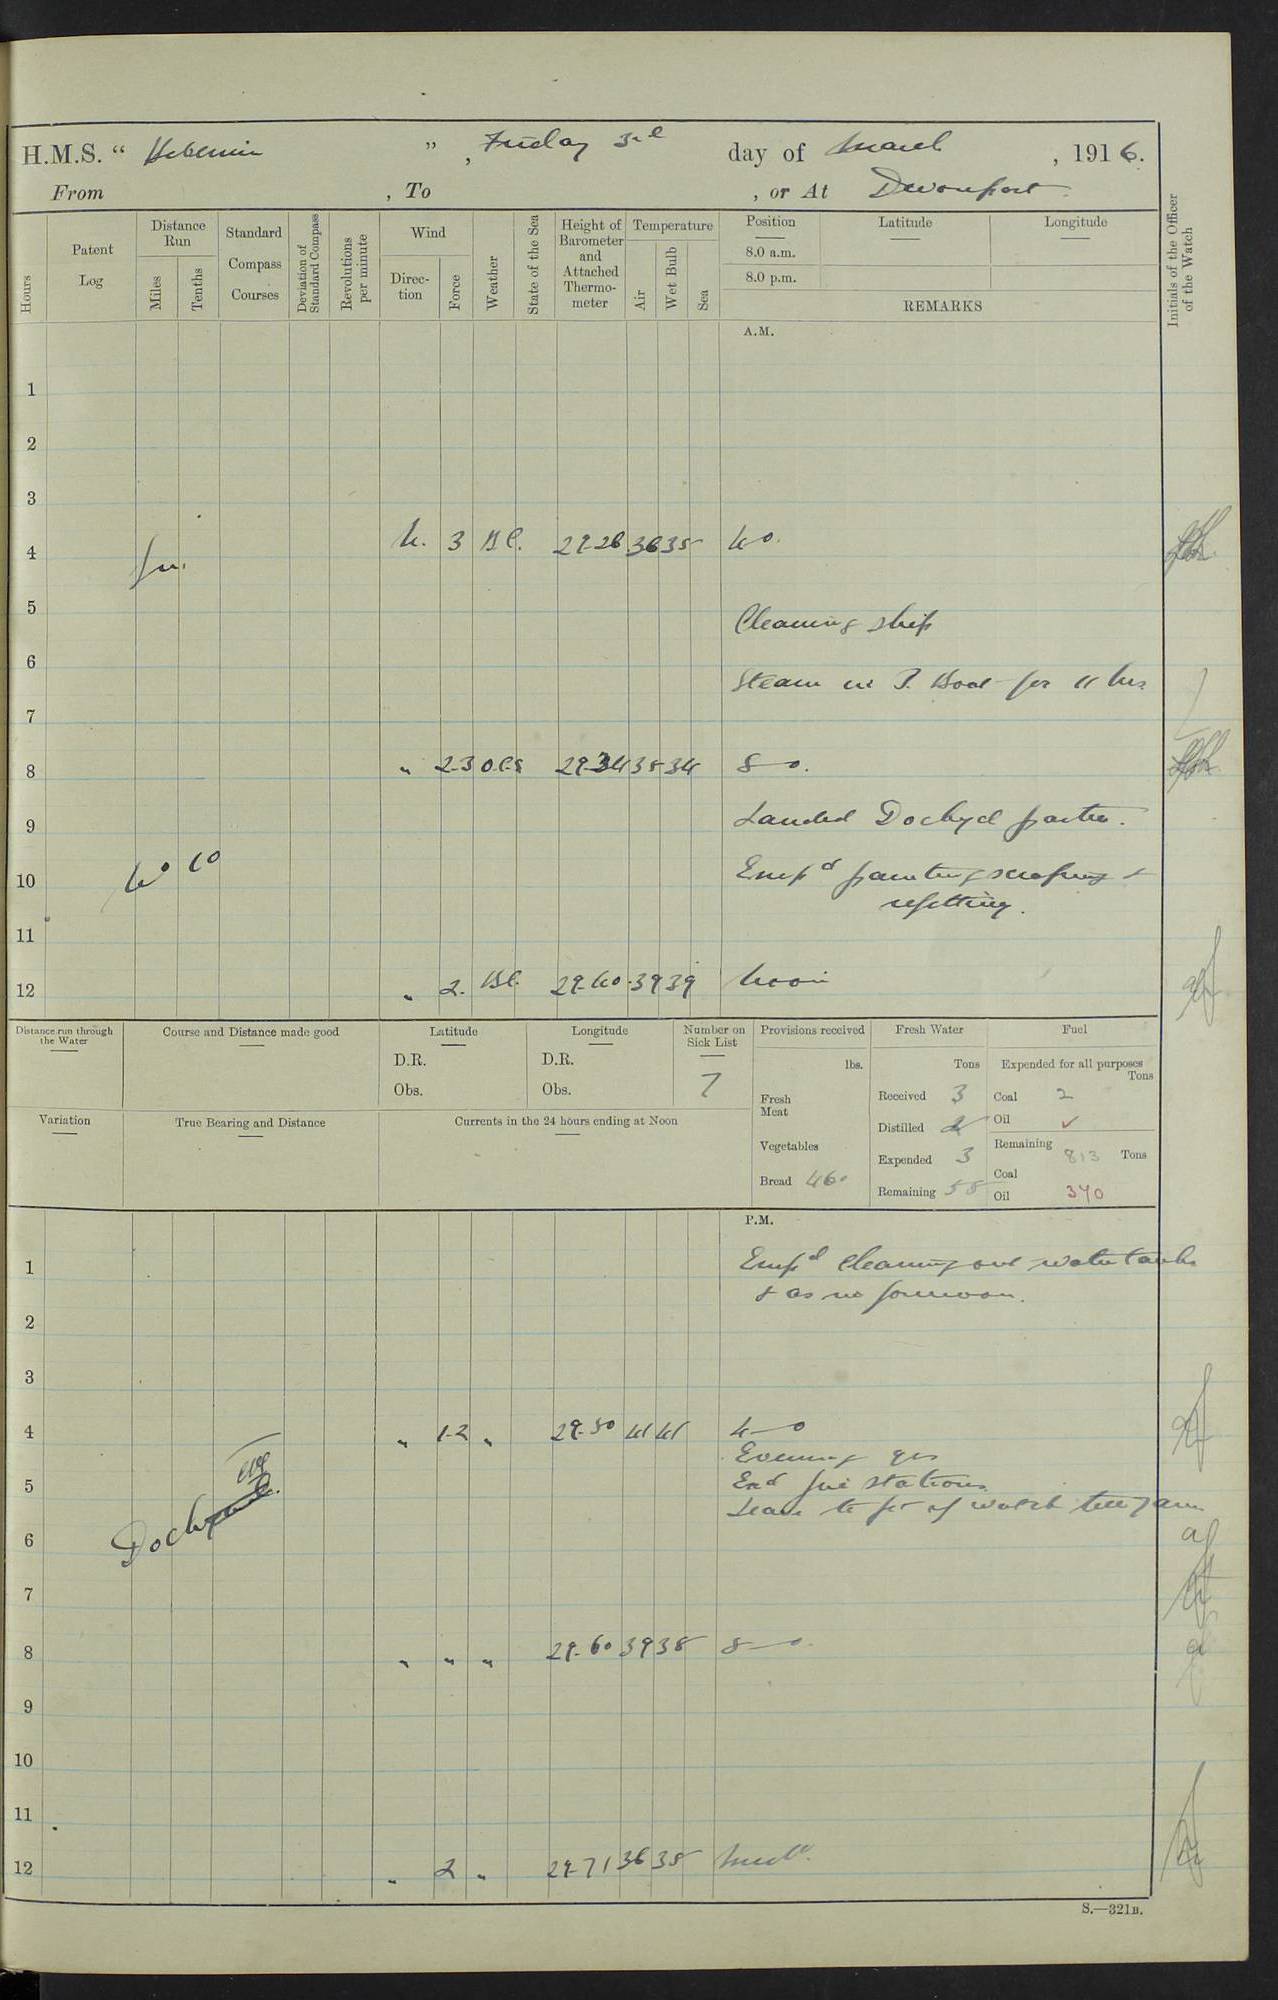 H.M.S. " Hibernia " , Friday 3rd day of March , 1916.
From , To , or At Devonport
Hours
Patent Log
Distance Run
Miles
Tenths
Standard Compass Courses
Deviation of Standard Compass
Revolutions per minute
Wind
Direction
Force
Weather
State of the Sea
Height of Barometer and Attached Thermometer
Temperature
Air
Wet Bulb
Sea
Position
Latitude
Longitude
8.0 a.m.
8.0 p.m.
REMARKS
Initials of the Officer of the Watch
A.M.
1
2
3
4 3 B.C. 29.26 36 35 4-0.
5 Cleaning ship
6 Steam in P. Boat for 11 hrs
7
8 " 2-3 O.C.S 29.34 35 34 8-0.
9 Landed Dockyd parties.
10 Empd painting scraping &
refitting.
11
12 " 2. B.C. 29.40 39 39 Noon
Distance run through the Water
Course and Distance made good
Latitude
D.R.
Obs.
Longitude
D.R.
Obs.
Number on Sick List
7
Provisions received
lbs.
Fresh Meat
Vegetables
Bread 460
Fresh Water
Tons
Received 3
Distilled
Expended 3
Remaining 58
Fuel
Expended for all purposes
Tons
Coal 2
Oil ✓
Remaining
813 Tons
Coal
Oil 370
Variation
True Bearing and Distance
Currents in the 24 hours ending at Noon
P.M.
1 Empd cleaning out water tanks
& as in forenoon.
2
3
4 " 1-2 " 29.50 41 41 4-0
Evening qrs
Exd fire stations
5 Leave to pt of watch till 7 am
6
7
8 " " " 29.60 39 38 8-0.
9
10
11
12 " 2 " 29.71 36 35 Midt.
S.—321B.